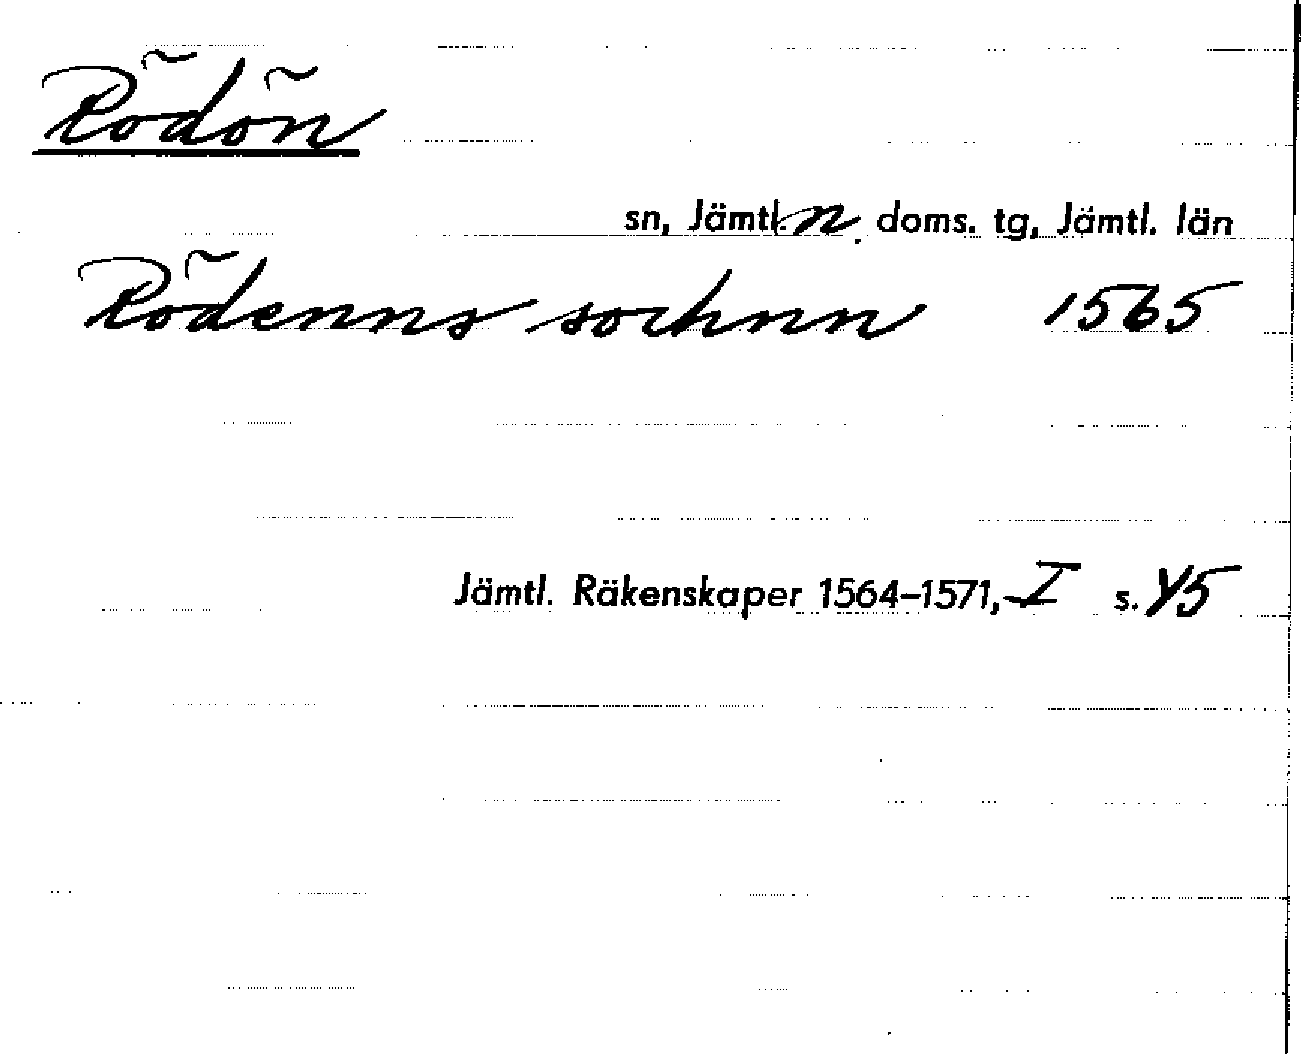 Rödön
sn, Jämtl. n. doms. tg, Jämtl. län
Rödenns sochnn 1565
Jämtl. Räkenskaper 1564–1571, I s. 45